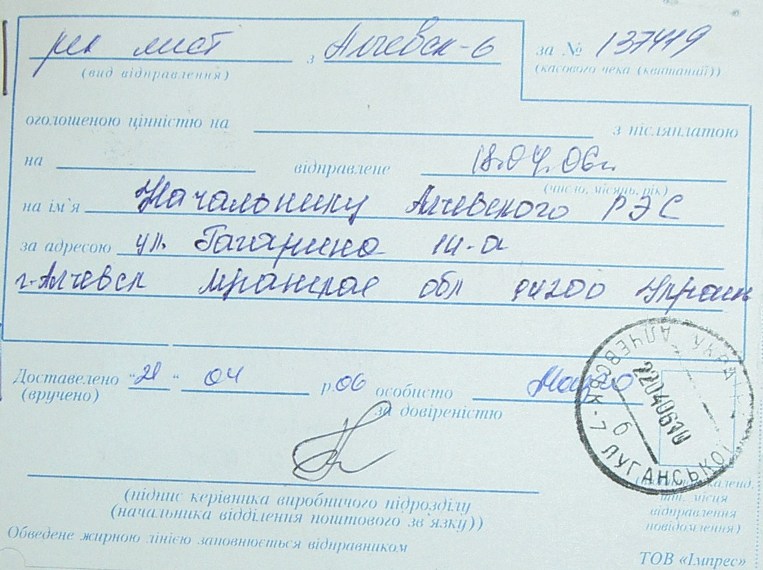 рек лист з Алчевск-6 за № 137419
(вид відправлення) (касового чека (квитанції))
оголошеною цінністю на з післяплатою
на відправлене 18.04.06г.
(число, місяць, рік)
на ім'я Начальнику Алчевского РЭС
за адресою ул. Гагарина 14-а
г. Алчевск Луганская обл 94200 Украина
Доставлено "21" 04 р.06 особисто
(вручено) за довіреністю
(підпис керівника виробничого підрозділу
(начальника відділення поштового зв'язку))
відправлення
повідомлення)
Обведене жирною лінією заповнюється відправником
ТОВ «Імпрес»
АЛЧЕВСЬК-7 ЛУГАНСЬКОЇ
220406 10
б